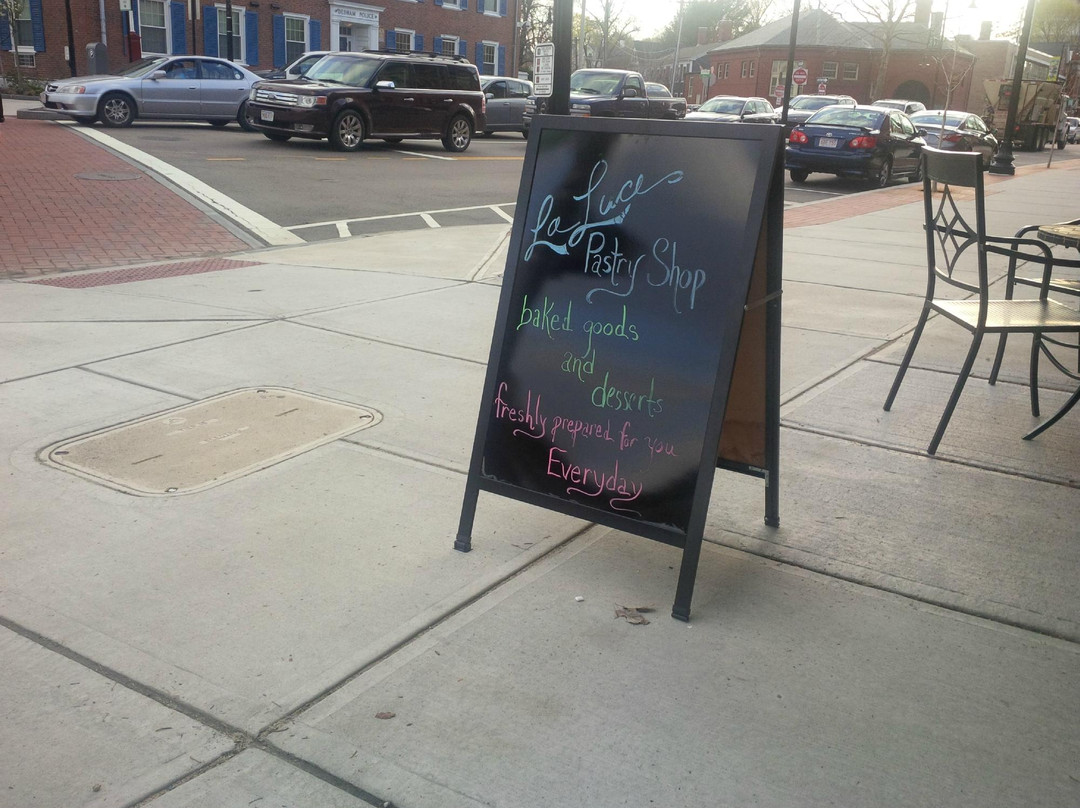 La Luce
Pastry Shop
baked goods
and
desserts
freshly prepared for you
Everyday